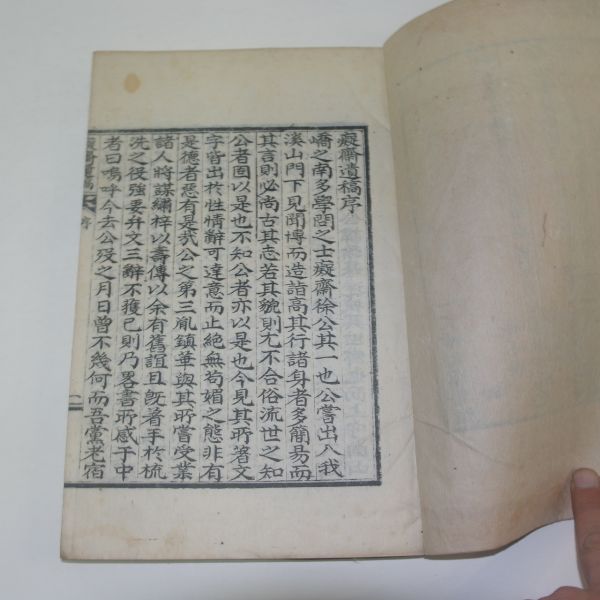 癡齋遺稿序
嶠之南多學問之士癡齋徐公其一也公嘗出入我
溪山門下見聞博而造詣高其行諸身者多簡易而
其言則必尚古其志若其貌則尤不合俗流世之知
公者固以是也不知公者亦以是也今見其所著文
字皆出於性情辭可達意而止絶無苟媚之態非有
是德者惡有是哉公之第三胤鎮華與其所嘗受業
諸人將謀繡梓以壽傳以余有舊誼且旣着手於梳
洗之役強要弁文三辭不獲已則乃畧書所感于中
者曰嗚呼今去公歿之月日曾不幾何而吾黨老宿
癡齋遺稿 序 一